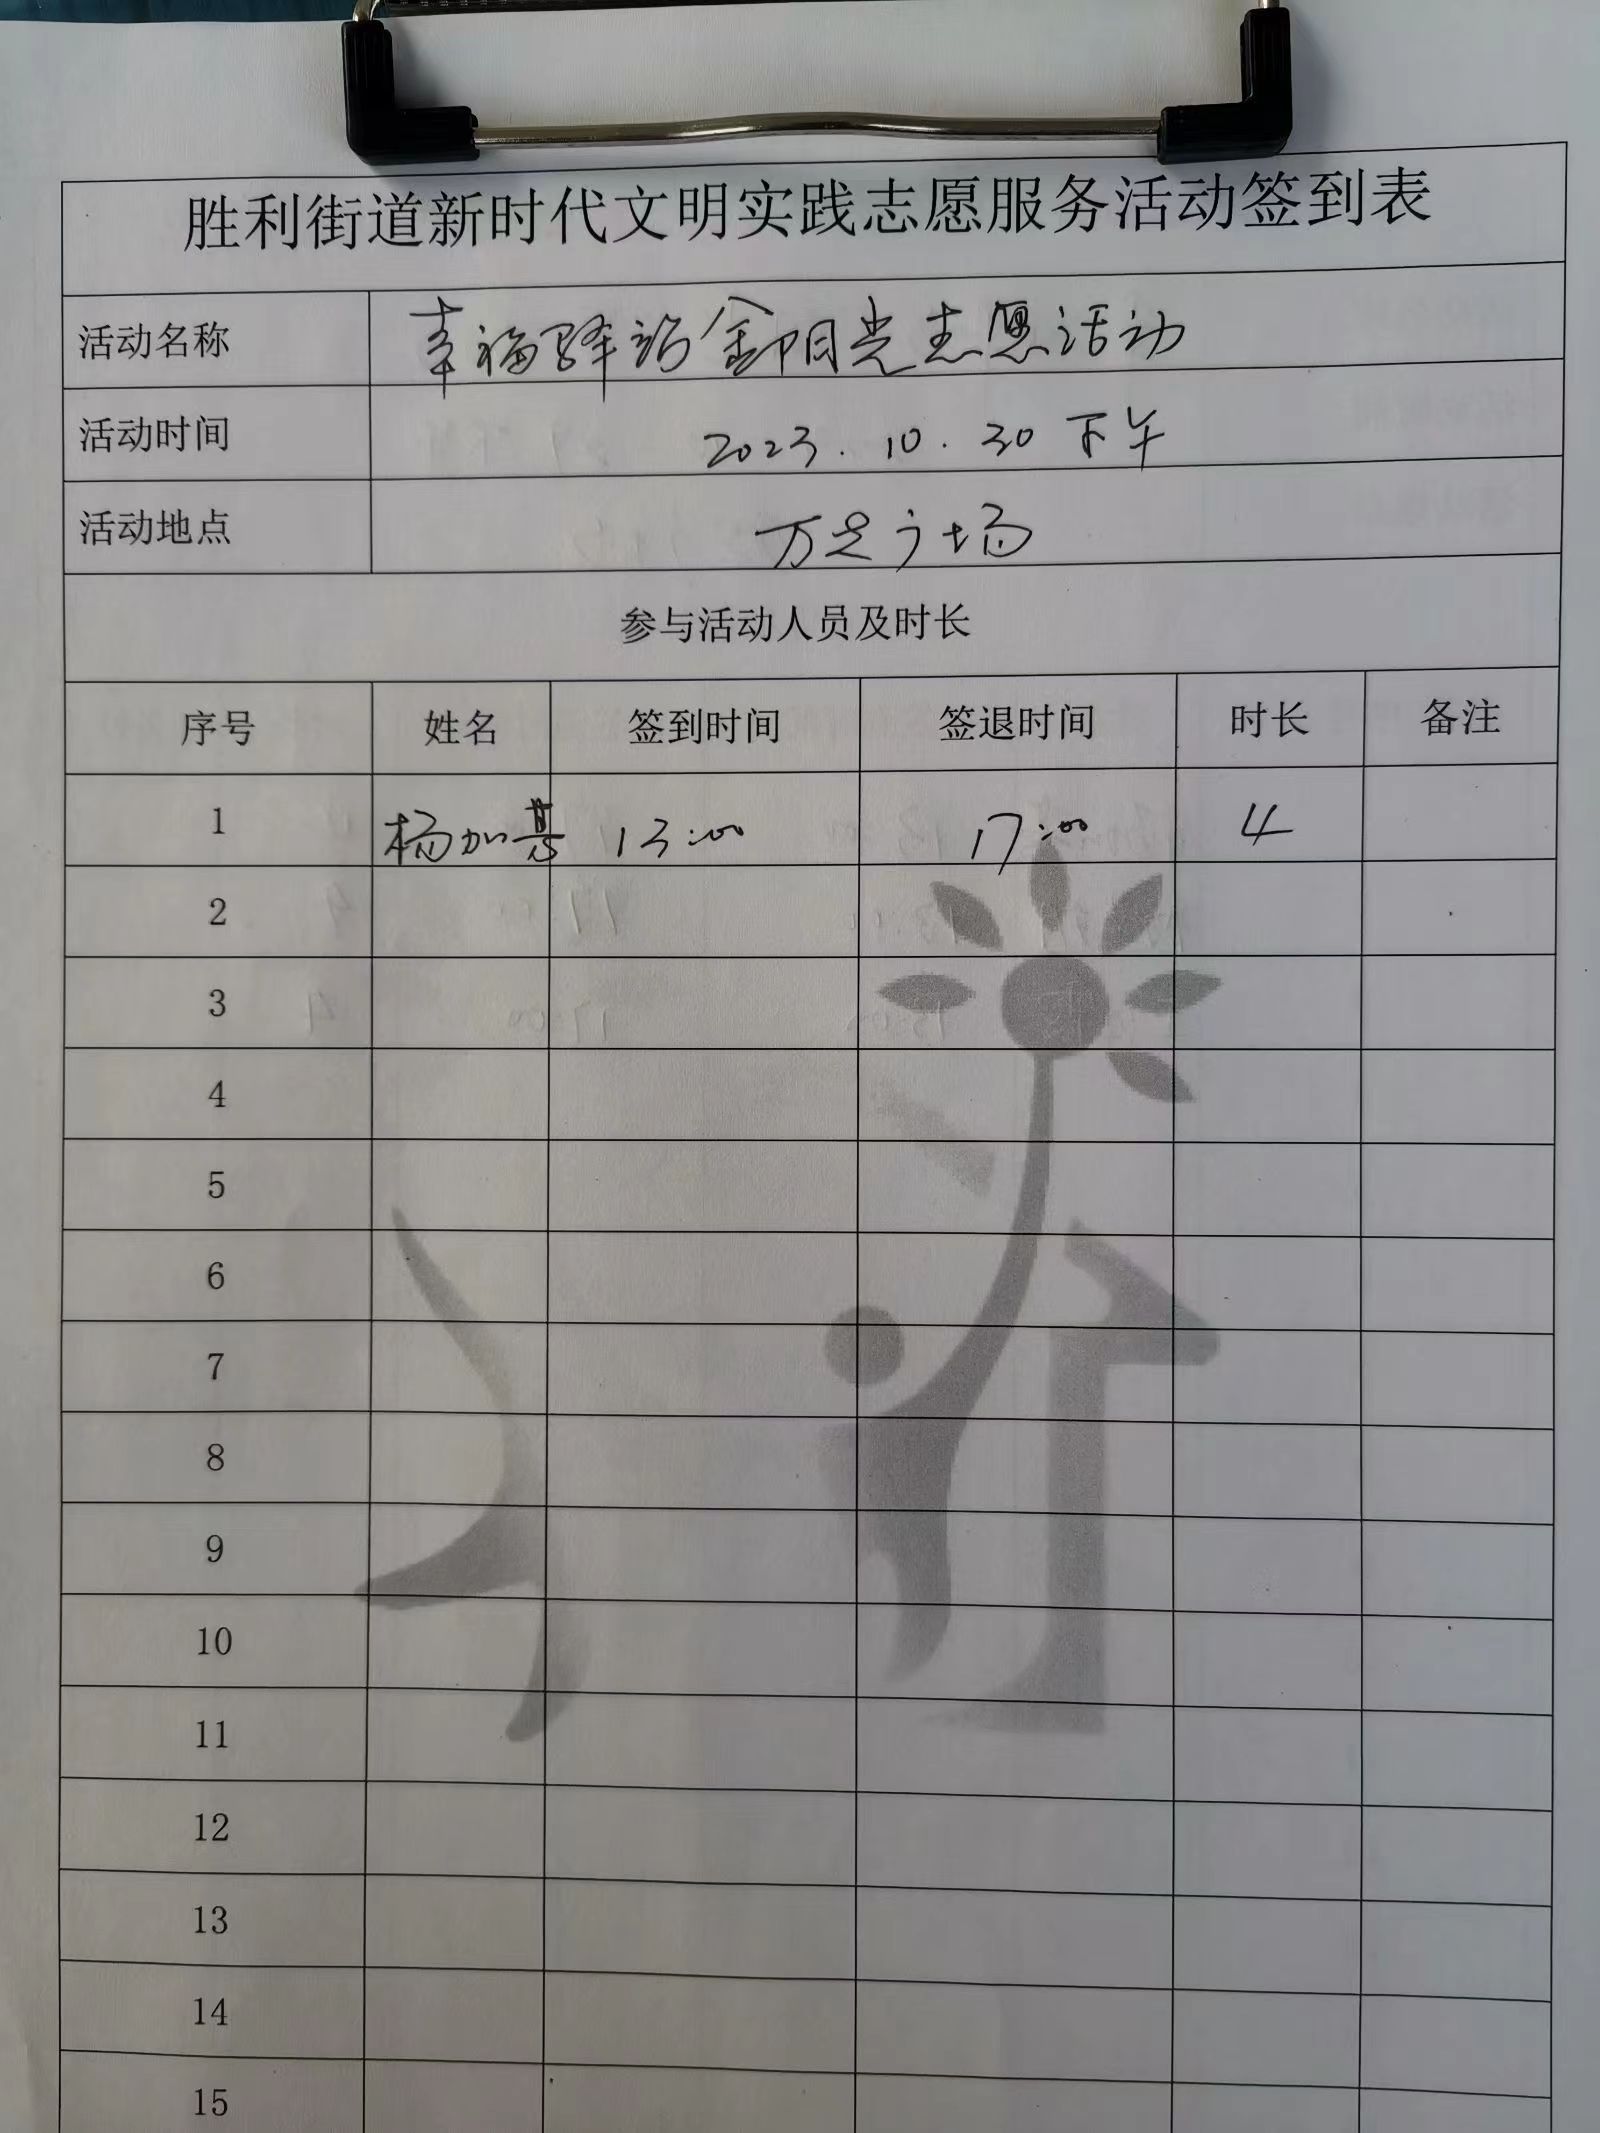 胜利街道新时代文明实践志愿服务活动签到表
活动名称 幸福驿站金阳光志愿活动
活动时间 2023.10.30下午
活动地点 万足广场
参与活动人员及时长
序号 姓名 签到时间 签退时间 时长 备注
1 杨加 13:00 17:00 4
2
3
4
5
6
7
8
9
10
11
12
13
14
15